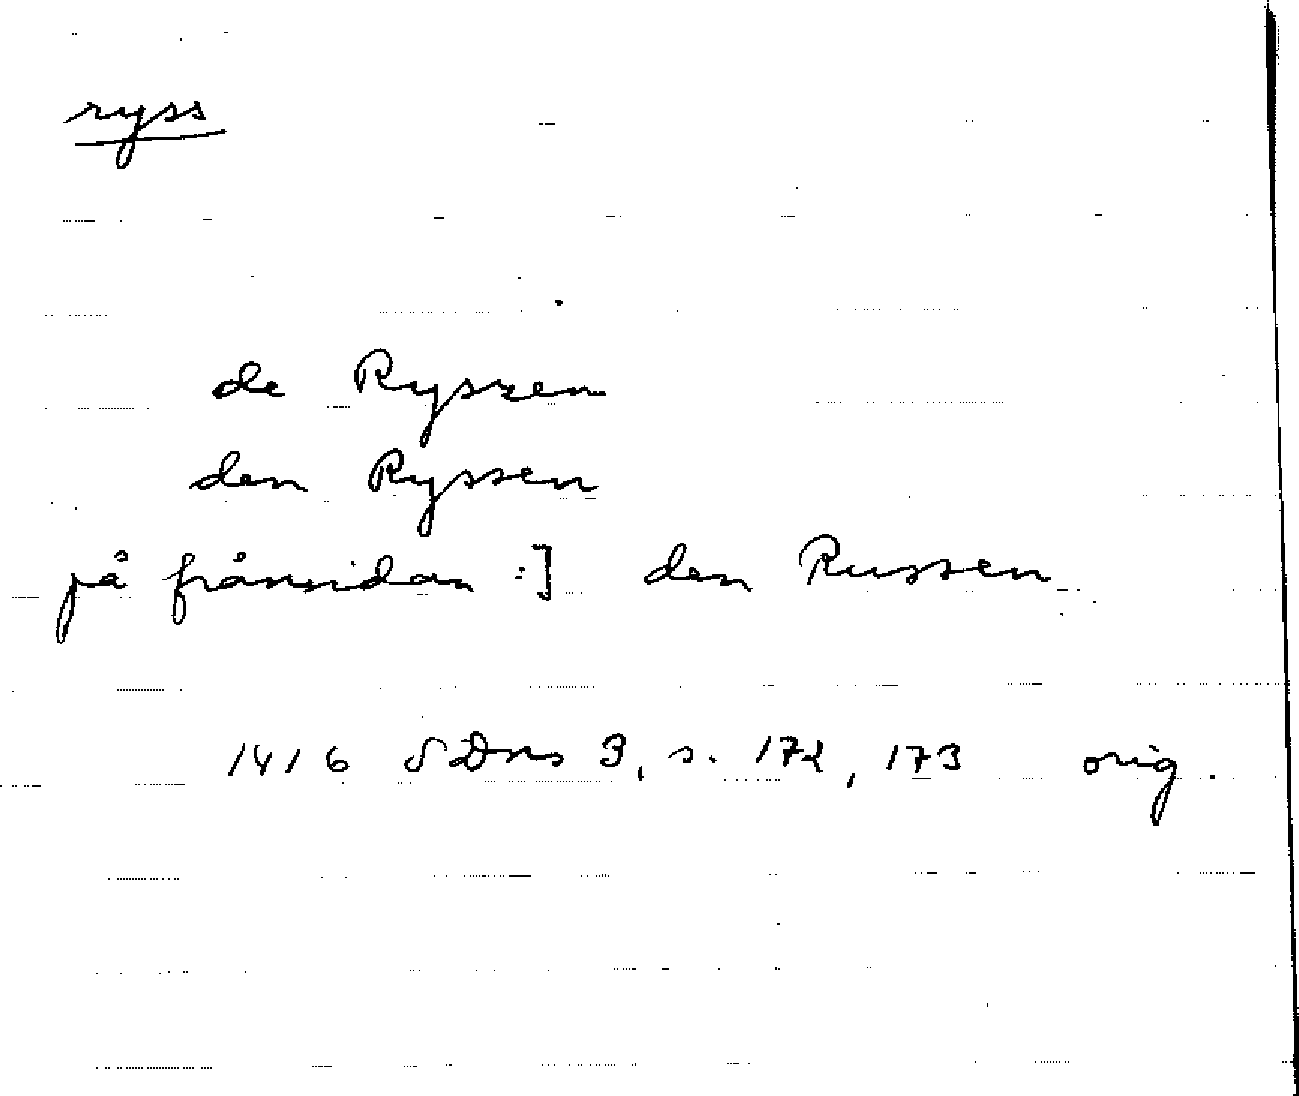 ryss
de Ryszen
den Ryssen
på frånsidan :] den Russen
1416 SDns 3, s. 172, 173 orig.